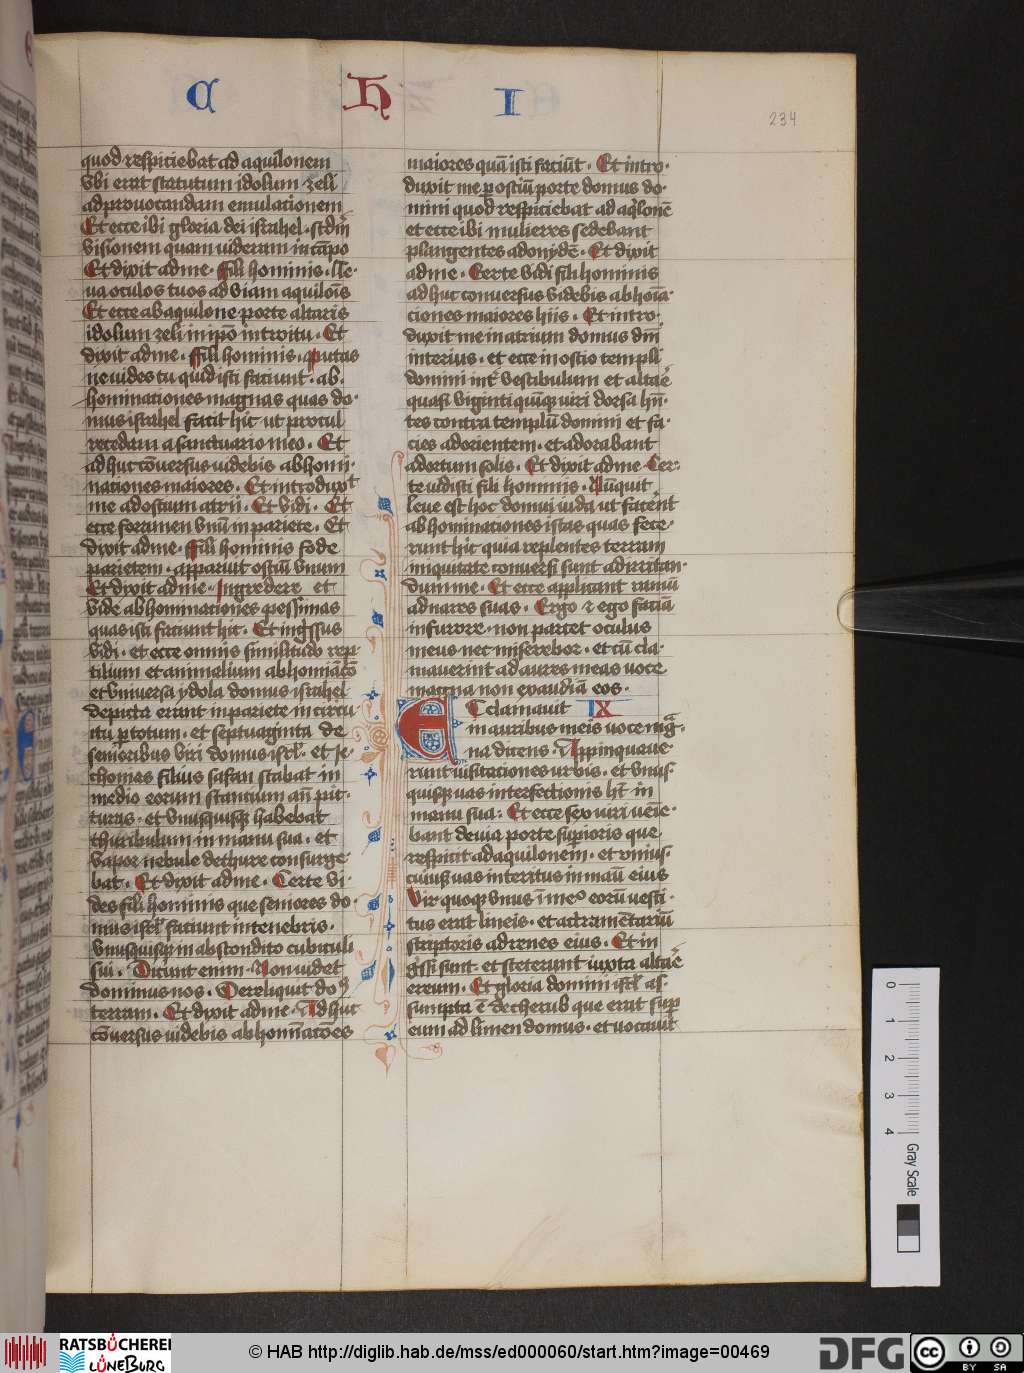 C H I
234
quod respiciebat ad aquilonem
vbi erat statutum idolum zeli
ad prouocandam emulationem
Et ecce ibi gloria dei israhel · scdm̄
visionem quam uideram in cāpo
Et dixit ad me · ffili hominis · lle-
ua oculos tuos ad viam aquilōis
Et ecce ab aquilone porte altaris
idolum zeli in ip̄o introitu · Et
dixit ad me · ffili hominis · putas
ne uides tu quid isti faciunt · ab·
hominationes magnas quas do·
mus israhel facit hic ut procul
recedam a sanctuario meo · Et
ad huc cōuersus uidebis abhomi·
nationes maiores · Et introduxit
me ad ostium atrii · Et vidi · Et
ecce foramen vnū in pariete · Et
dixit ad me · ffili hominis fode
parietem · apparuit ostiū vnum
Et dixit ad me · Ingredere et
vide abhominationes pessimas
quas isti faciunt hic · Et ingressus
vidi · et ecce omnis similitudo rep·
tilium et animalium abhomīacō
et vniuersa ydola domus israhel
depicta erant in pariete in circu·
itu p totum · et septuaginta de
senioribus viri domus isrl · et Je·
chomas filius safan stabat in
medio eorum stancium an̄ pic·
turas · et vnusquisqꝫ habebat
thuribulum in manu sua · et
vapor nebule de thure consurge·
bat · Et dixit ad me · Certe vi·
des fili hominis que seniores do·
mus isrl faciunt in tenebris ·
vnusquisqꝫ in abscondito cubiculi
sui · Dicunt enim · Non uidet
dominus nos · Dereliquit do9
terram · Et dixit ad me · Ad huc
cōuersus uidebis abhominacōes
maiores quā isti faciūt · Et intro·
duxit me p ostiū porte domus do·
mini quod respiciebat ad aqilonē
et ecce ibi mulieres sedebant
plangentes adonydē · Et dixit
ad me · Certe vidi fili hominis
ad huc conuersus videbis abhoīa·
ciones maiores hiis · Et intro·
duxit me in atrium domus dm̄i
interius · et ecce in ostio templi
domini int vestibulum et altarē
quasi viginti quīqꝫ viri dorsa hn̄·
tes contra templū domini et fa·
cies ad orientem · et adorabant
ad ortum solis · Et dixit ad me · Cer·
te uidisti fili hominis · Nūquit
leue est hoc domui iuda ut facerēt
abhominationes istas quas fece·
runt hic quia replentes terram
iniquitate conuersi sunt ad irritan·
dum me · Et ecce applicant ramū
ad nares suas · Ergo ⁊ ego faciā
in furore · non parcet oculus
meus nec miserebor · et cū cla·
mauerint ad aures meas voce
magna non exaudiā eos ·
ET clamauit IX
in auribus meis uoce mag·
na dicens · Appinquaue·
runt uisitationes urbis · et vnus·
quisqꝫ uas interfectionis ht in
manu sua : Et ecce sex uiri uēie·
bant de uia porte supioris que
respicit ad aquilonem · et vnius·
cuiusqꝫ uas interitus in manū eius
Vir quoqꝫ vnus ī meo eorū uesti·
tus erat lineis · et actramētariū
scriptoris ad renes eius · Et in
gssi sunt · et steterunt iuxta altarē
ereum · Et gloria domini isrl as·
sumpta ē de cherub que erat sup
eum ad limen domus · et uocauit
0 1 2 3 4
Gray Scale
RATSBÜCHEREI
LÜNEBURG
© HAB http://diglib.hab.de/mss/ed000060/start.htm?image=00469
DFG
cc BY SA